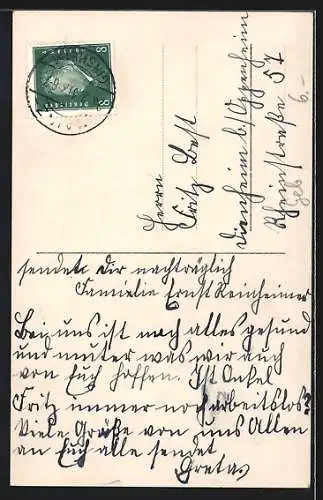 Herrn
Fritz Best
Dienheim b/Oppenheim
Rheinstraße 57
6.-
sendet Dir nachträglich
Familie Ernst Reinheimer
Bei uns ist noch alles gesund
und munter was wir auch
von Euch hoffen. Ist Onkel
Fritz immer noch arbeitslos?
Viele Grüße von uns Allen
an Euch alle sendet
Greta.
8 8